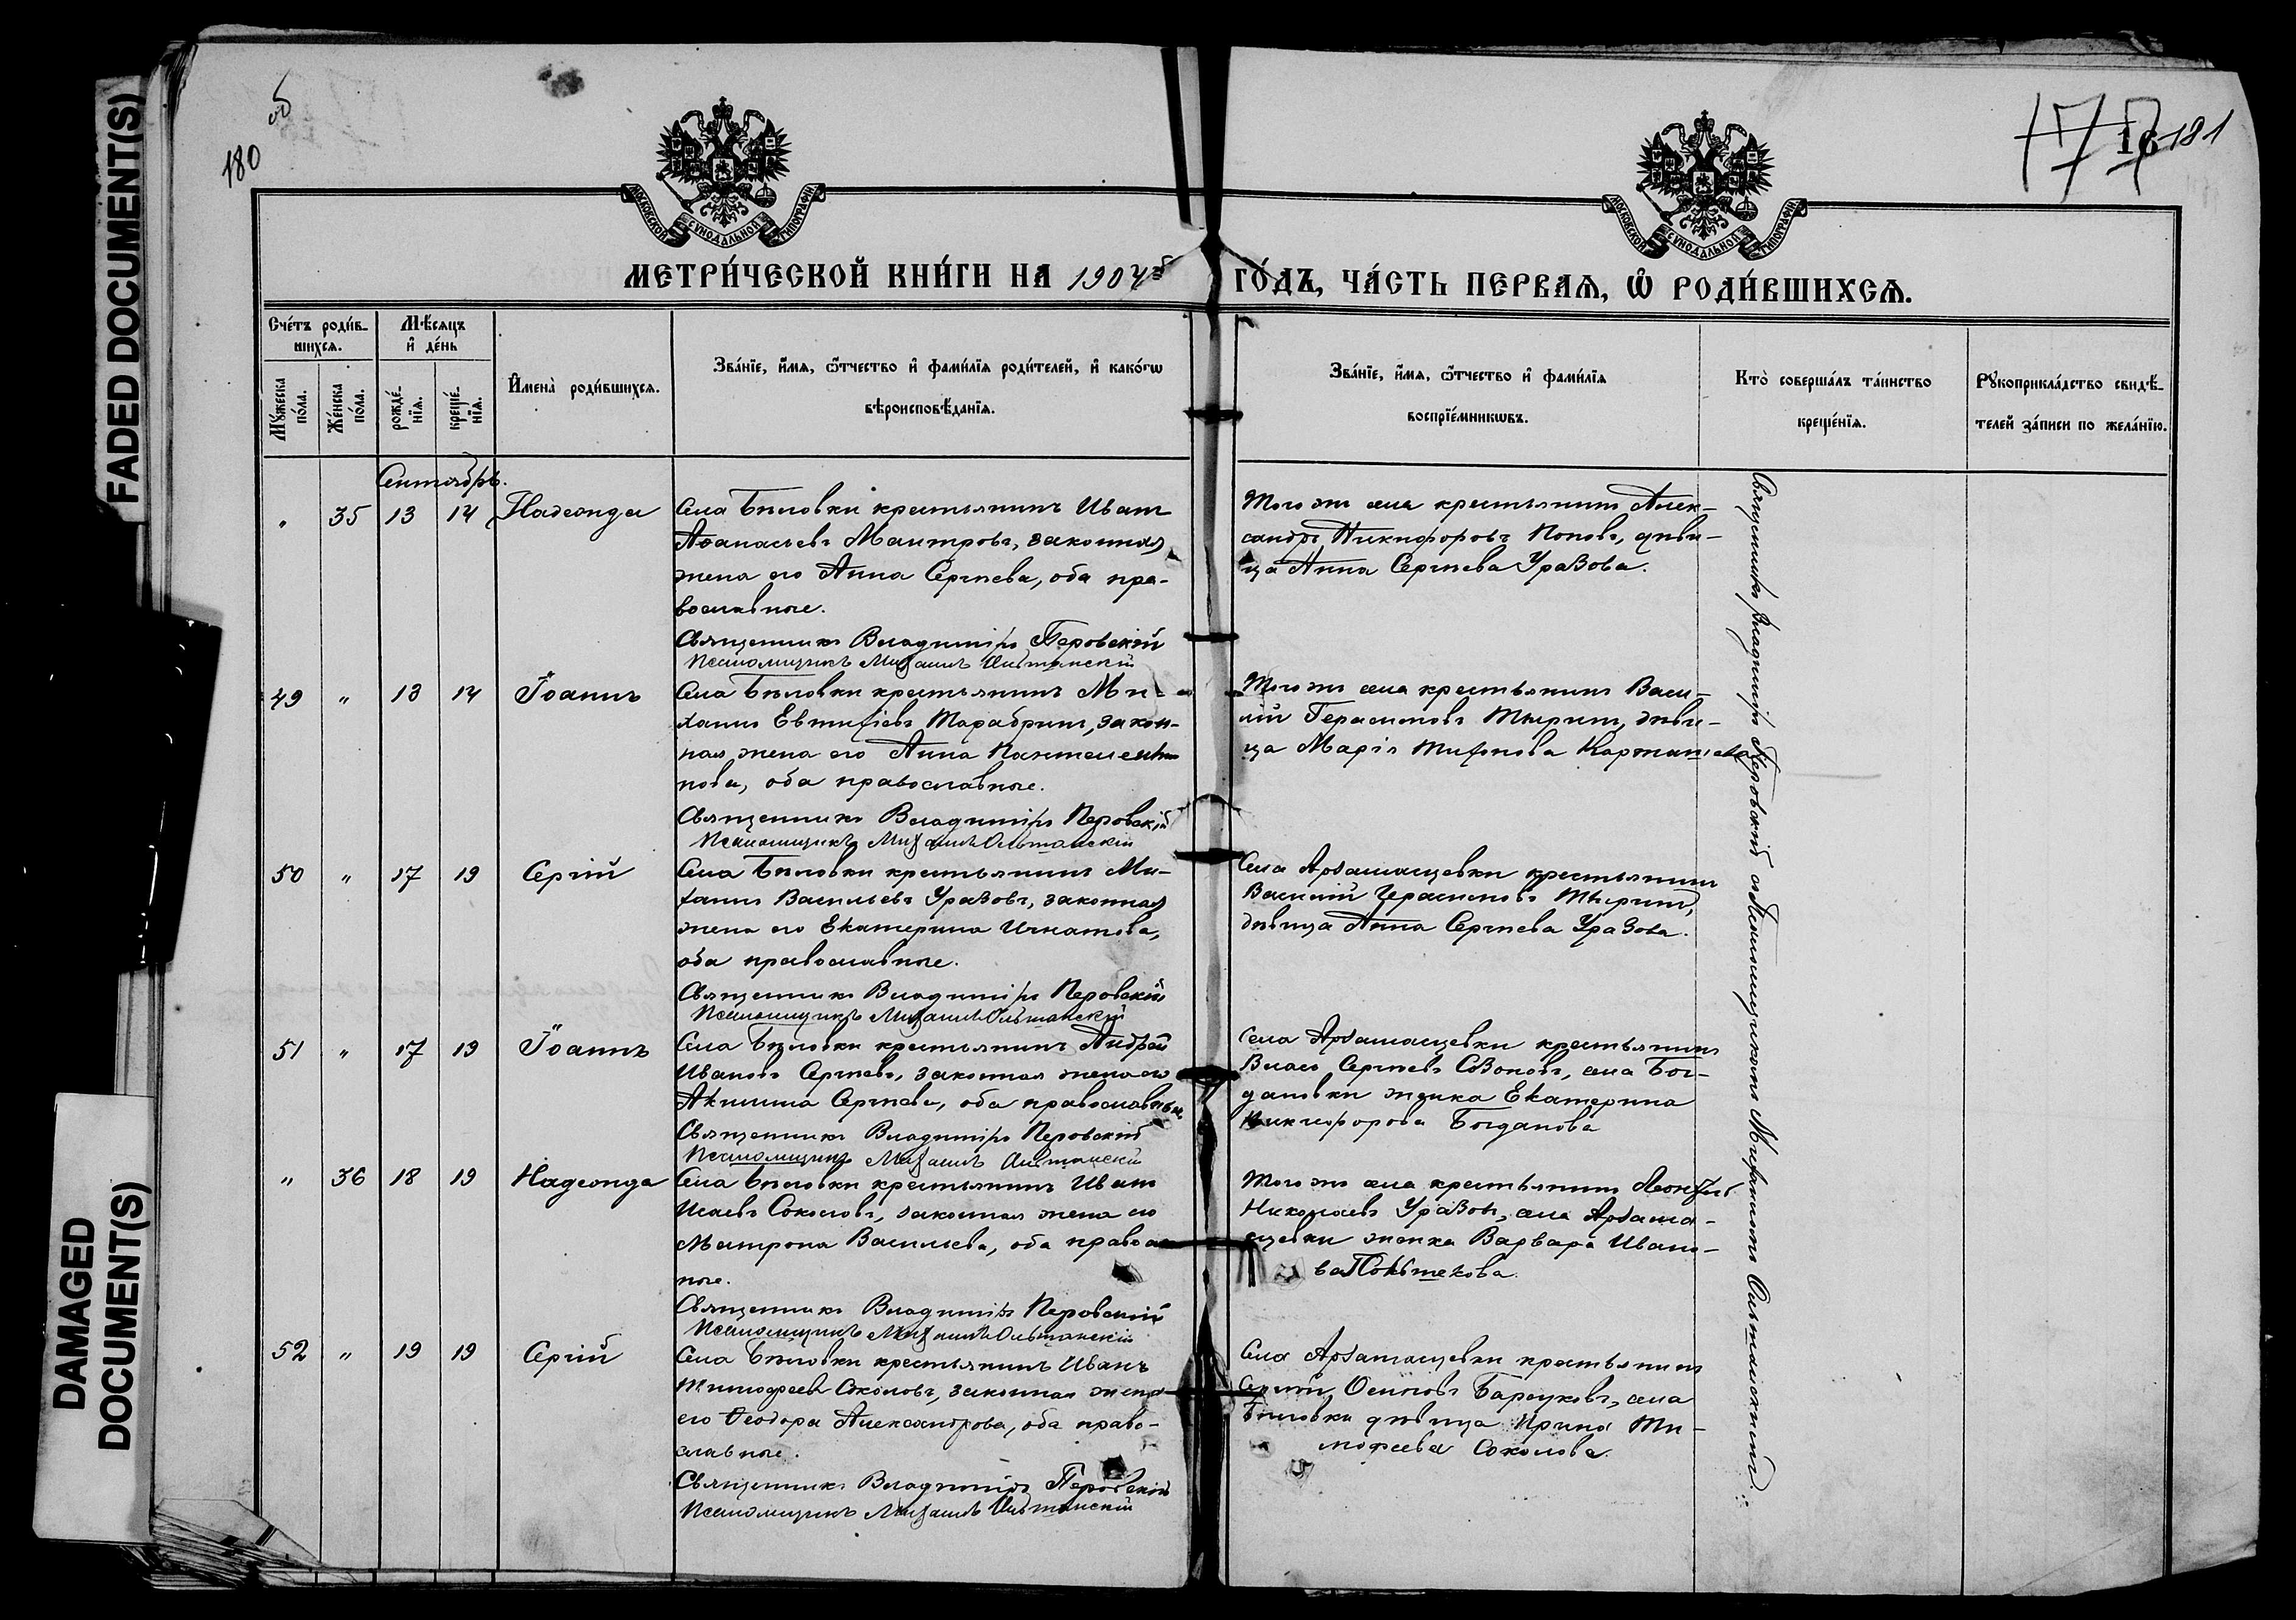 FADED DOCUMENT(S)
DAMAGED
DOCUMENT(S)
об
180
181
МОСКОВСКОЙ СѴНОДАЛЬНОЙ ТИПОГРАФІИ
МОСКОВСКОЙ СѴНОДАЛЬНОЙ ТИПОГРАФІИ
МЕТРИ́ЧЕСКОЙ КНИ́ГИ НА 1904й
ГО́ДЪ, ЧА́СТЬ ПЕРВАѦ, Ѡ҆ РОДИ́ВШИХСѦ.
Сче́тъ роди́в-
шихсѧ.
Мꙋ́жеска
по́ла.
Же́нска
по́ла.
Мѣ́сѧцъ
и҆ де́нь
рожде́-
нїѧ.
креще́-
нїѧ.
И҆мена̀ роди́вшихсѧ.
Зва́нїе, и҆́мѧ, ѻ҆́тчество и҆ фами́лїѧ роди́телей, и҆ како́гѡ
вѣроисповѣ́данїѧ.
Зва́нїе, и҆́мѧ, ѻ҆́тчество и҆ фами́лїѧ
воспрїе́мникѡвъ.
Кто̀ соверша́лъ та́инство
креще́нїѧ.
Рꙋкоприкла́дство свидѣ́-
телей за́писи по жела́нїю.
Сентябрь.
„ 35 13 14 Надежда
Села Бѣловки крестьянинъ Иванъ
Аѳанасьевъ Маитровъ, законная
жена его Анна Сергѣева, оба пра-
вославные.
Священникъ Владиміръ Перовскій
Псаломщикъ Михаилъ Ольшанскій
Того же села крестьянинъ Алек-
сандръ Никифоровъ Поповъ, дѣви-
ца Анна Сергѣева Уразова.
49 „ 13 14 Іоаннъ
Села Бѣловки крестьянинъ Ми-
хаилъ Евтихіевъ Тарабринъ, закон-
ная жена его Анна Пантелеим-
нова, оба православные.
Священникъ Владиміръ Перовскій
Псаломщикъ Михаилъ Ольшанскій
Того же села крестьянинъ Васи-
лій Герасимовъ Тыринъ, дѣви-
ца Марія Тихонова Карташева
50 „ 17 19 Сергій
Села Бѣловки крестьянинъ Ми-
хаилъ Васильевъ Уразовъ, законная
жена его Екатерина Игнатова,
оба православные.
Священникъ Владиміръ Перовскій
Псаломщикъ Михаилъ Ольшанскій
Села Арзамасцевки крестьянинъ
Василій Герасимовъ Тыринъ,
дѣвица Анна Сергѣева Уразова.
51 „ 17 19 Іоаннъ
Села Бѣловки крестьянинъ Андрей
Ивановъ Сергѣевъ, законная жена его
Акилина Сергѣева, оба православные.
Священникъ Владиміръ Перовскій
Псаломщикъ Михаилъ Ольшанскій
Села Арзамасцевки крестьянинъ
Власъ Сергѣевъ Созоновъ, села Бог-
дановки женка Екатерина
Никифорова Богданова
„ 36 18 19 Надежда
Села Бѣловки крестьянинъ Иванъ
Исаевъ Соколовъ, законная жена его
Матрона Васильева, оба правосла
ные.
Священникъ Владиміръ Перовскій
Псаломщикъ Михаилъ Ольшанскій
Того же села крестьянинъ Леонтій
Николаевъ Уразовъ, села Арзама-
сцевки женка Варвара Ивано-
ва
52 „ 19 19 Сергій
Села Бѣловки крестьянинъ Иванъ
Тимофеевъ Соколовъ, законная жена
его Ѳеодора Александрова, оба право-
славные.
Священникъ Владиміръ Перовскій
Псаломщикъ Михаилъ Ольшанскій
Села Арзамасцевки крестьянинъ
Сергѣй Осиповъ Барсуковъ, села
Бѣловки дѣвица Ирина Ти-
мофеева Соколова.
Священникъ Владиміръ Перовскій съ псаломщикомъ Михаиломъ Ольшанскимъ